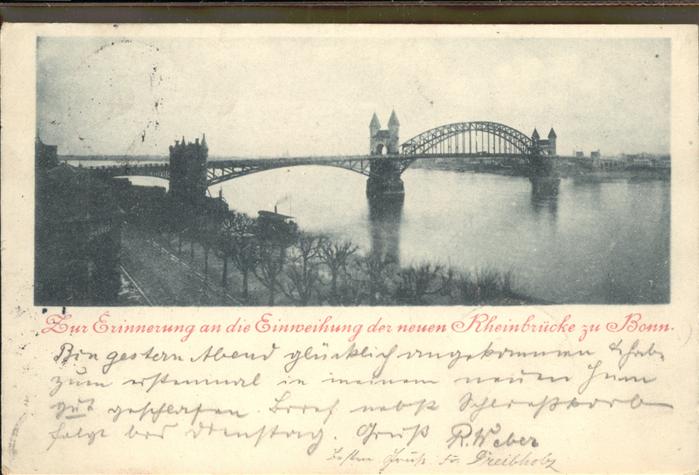 Zur Erinnerung an die Einweihung der neuen Rheinbrücke zu Bonn.
Bin gestern Abend glücklich angekommen & habe
zum erstenmal in meinem neuen
gut geschlafen. Brief nebst
folgt bis Dienstag. Gruß R. Weber
besten Gruß Fr. Dreibholz